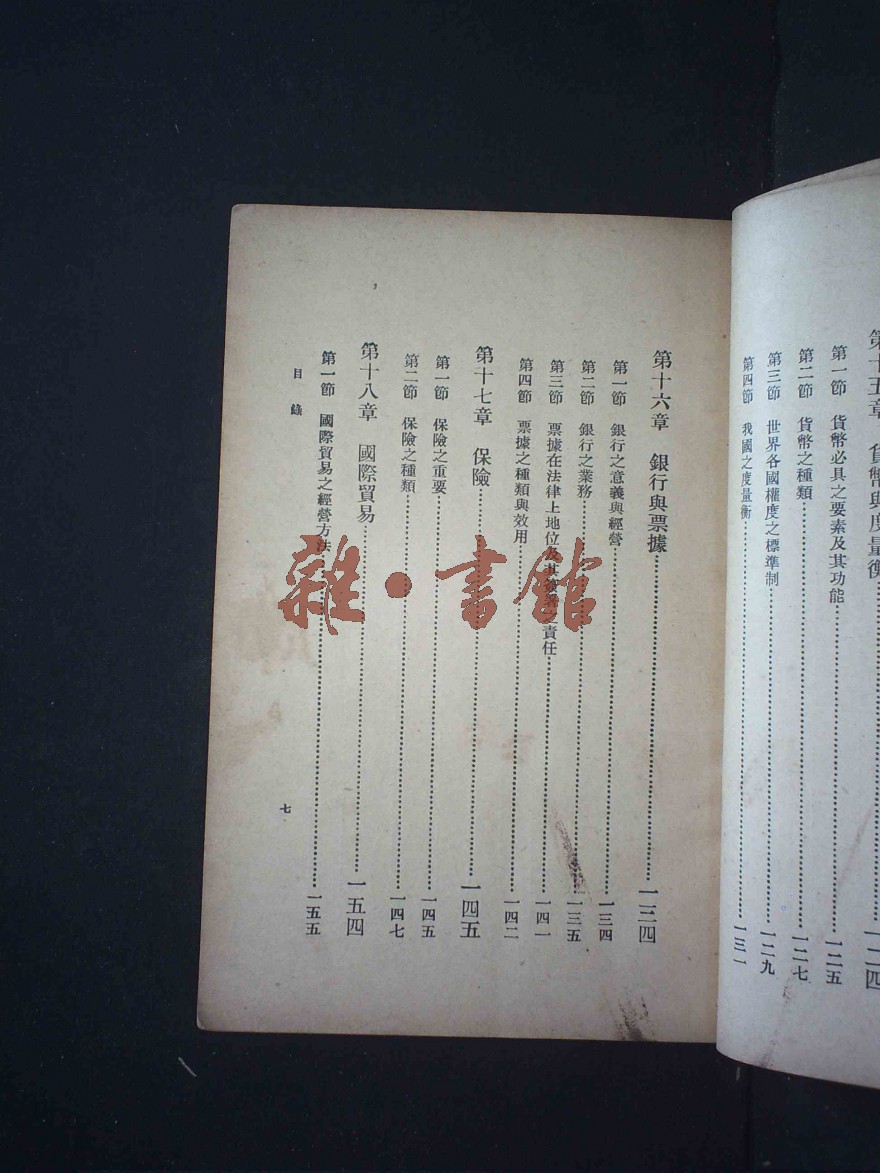 第十五章 貨幣與度量衡……一二四
第一節 貨幣必具之要素及其功能……一二五
第二節 貨幣之種類……一二七
第三節 世界各國權度之標準制……一二九
第四節 我國之度量衡……一三一
第十六章 銀行與票據……一三四
第一節 銀行之意義與經營……一三四
第二節 銀行之業務……一三五
第三節 票據在法律上地位及其 之責任……一四一
第四節 票據之種類與效用……一四二
第十七章 保險……一四五
第一節 保險之重要……一四五
第二節 保險之種類……一四七
第十八章 國際貿易……一五四
第一節 國際貿易之經營方法……一五五
目錄
七
雜·書館